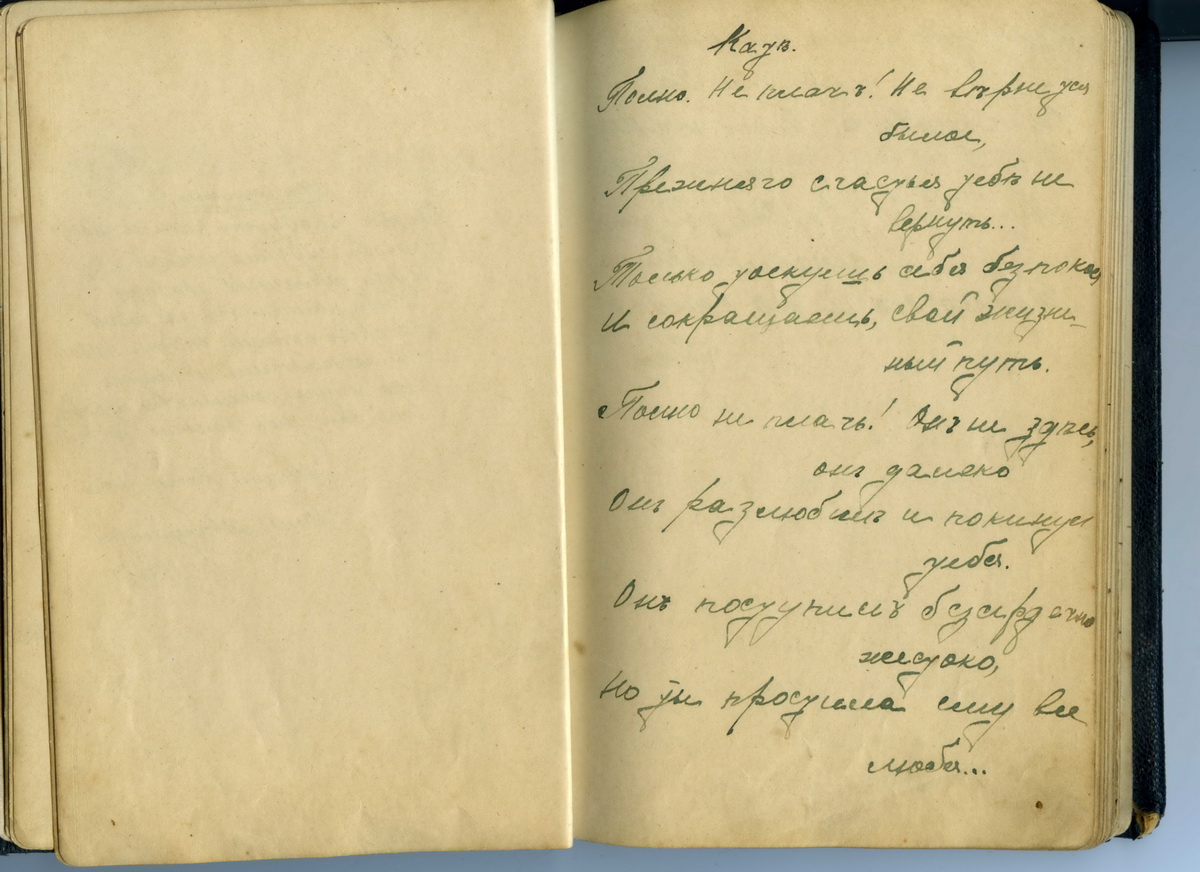 Полно. Не плачъ! Не вѣрнутся
былое,
Прежняго счастья тебѣ не
вернуть...
Только тоскуешь себя безпокоя
И сокращаешь, свой жизн-
ный путь.
Полно не плачь! Онъ не здѣсь,
онъ далеко
Онъ разлюбилъ и покинул
тебя.
Онъ поступилъ безсердечно
жестоко,
Но ты простила ему все
любя...